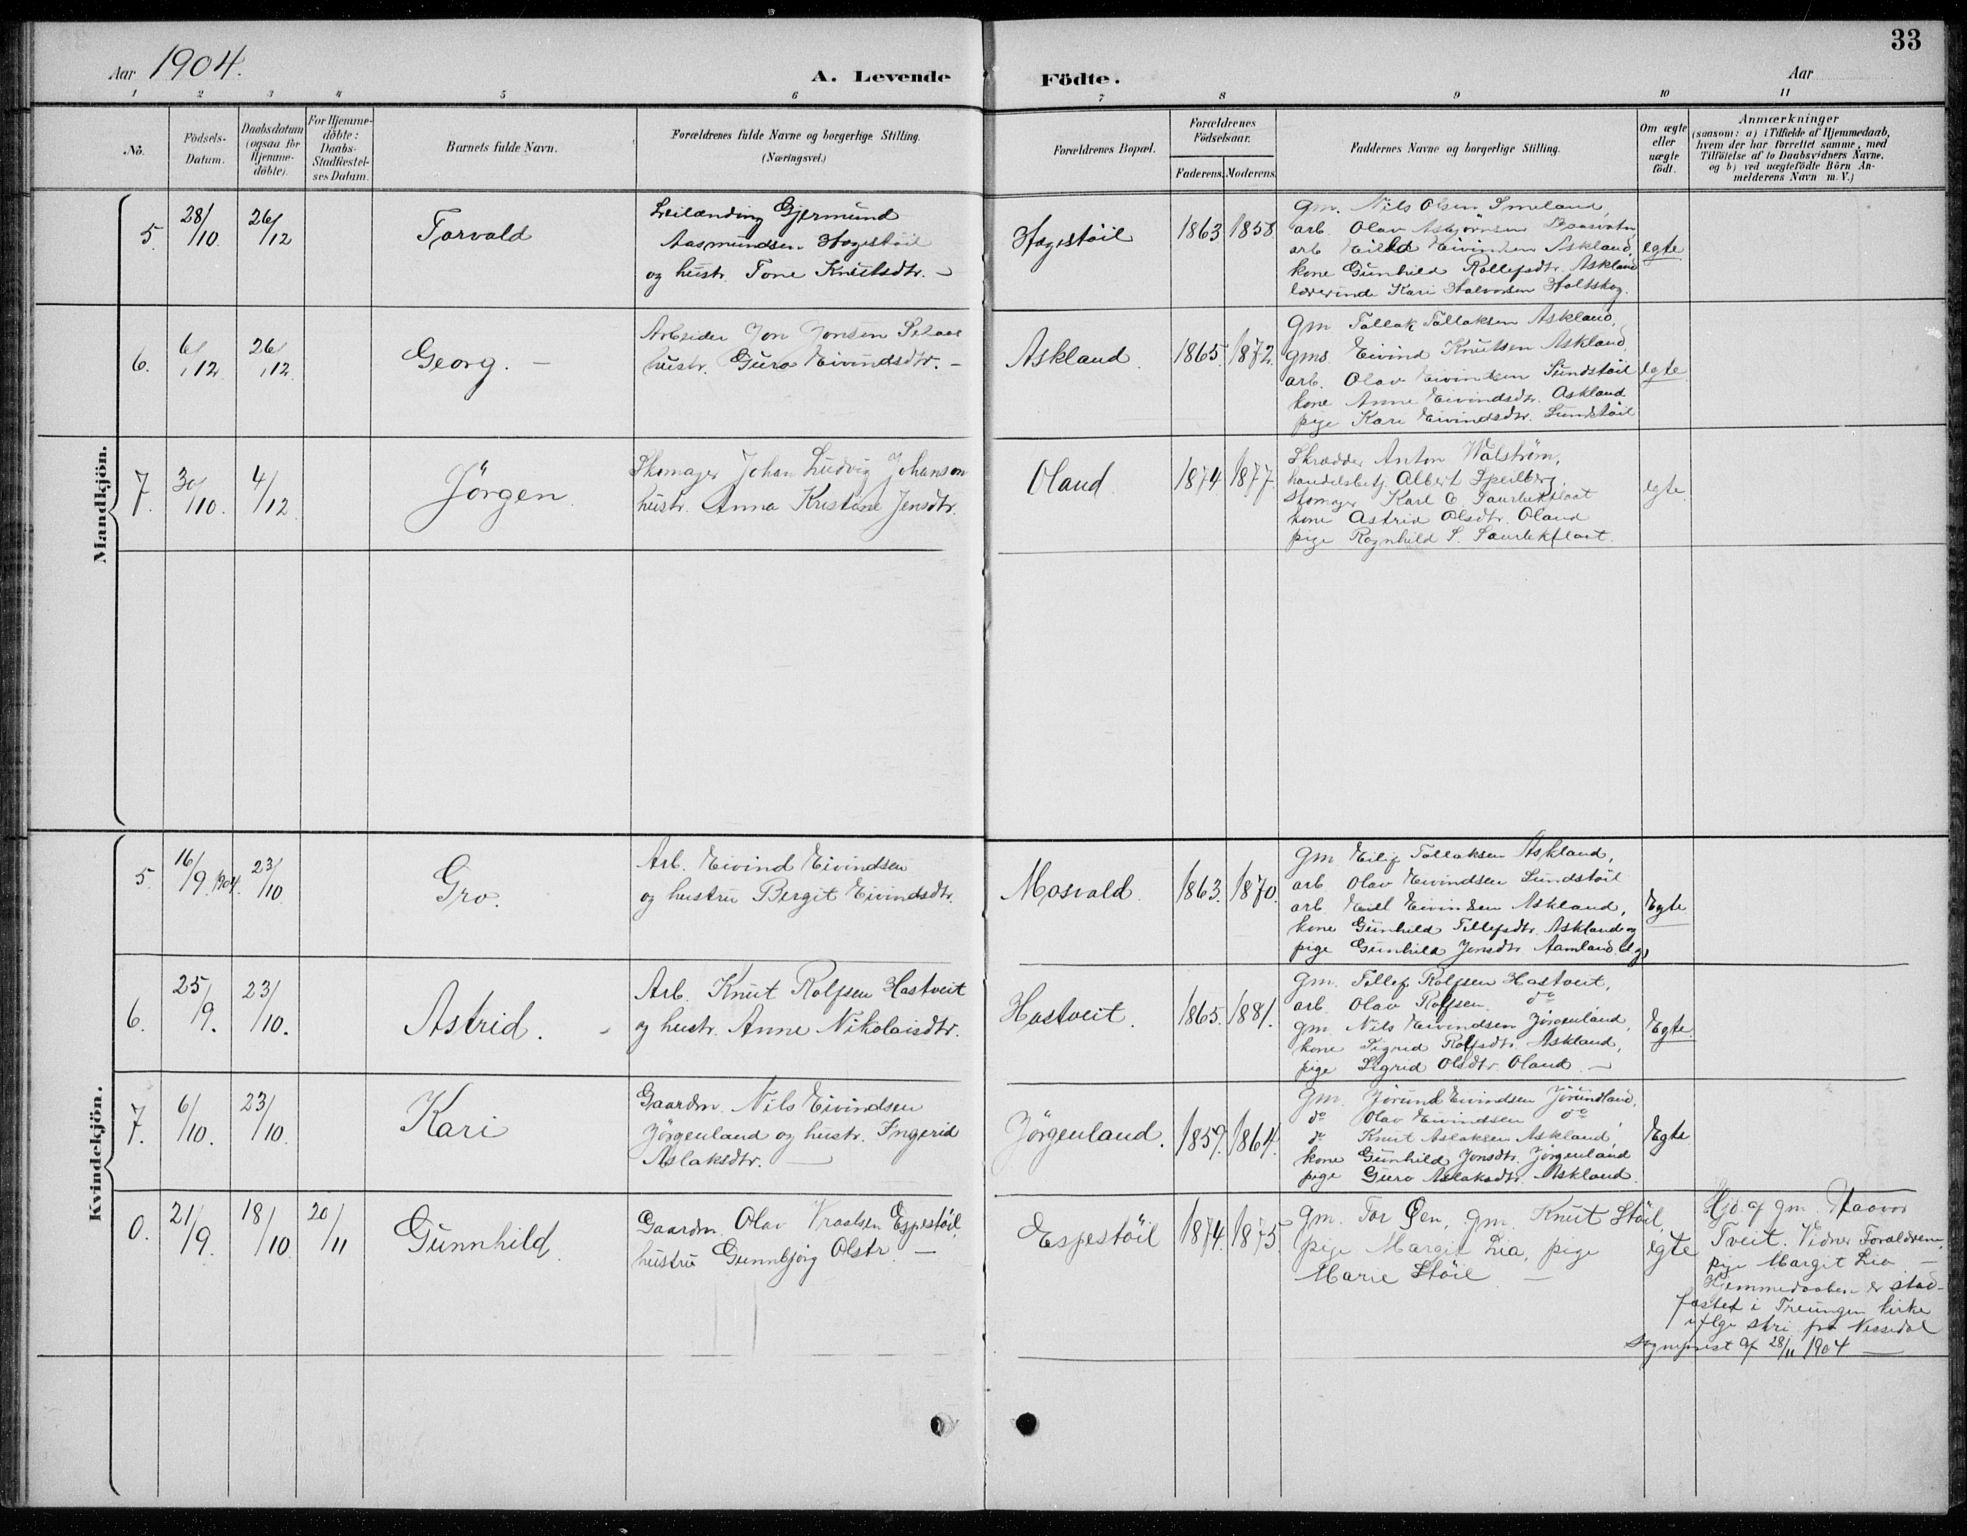 33
Aar 1904.
A. Levende Födte.
Aar
1 2 3 4 5 6 7 8 9 10 11
No.
Födsels-Datum.
Daabsdatum (ogsaa for Hjemme-döbte).
For Hjemme-döbte: Daabs-Stadfæstel-ses Datum.
Barnets fulde Navn.
Forældrenes fulde Navne og borgerlige Stilling.
(Næringsvei.)
Forældrenes Bopæl.
Forældrenes Födselsaar.
Faderens. Moderens.
Faddernes Navne og borgerlige Stilling.
Om ægte eller uægte födt.
Anmærkninger
(saasom: a) i Tilfælde af Hjemmedaab,
hvem der har forrettet samme, med
Tilföielse af to Daabsvidners Navne,
og b) ved uægtefödte Börn An-
melderens Navn m. V.)
Mandkjön.
5. 28/10. 26/12 Torvald
Leilænding Gjermund
Aasmundsen Hagestöil
og hustr. Tone Knutsdtr. -
Hagestöil 1863 1858
gm. Nils Olsen Smeland,
arb. Olav Asbjörnsen
arb Eivindsen Askland,
kone Gunhild Rollefsdtr. Askland
lærerinde Kari Halvorsen Holtskog.
egte
6. 6/12 26/12 Georg. -
Arbeider Jon Jonsen
hustr. Guro Eivindsdtr. -
Askland 1865. 1872.
Gm Tallak Tallaksen Askland,
gms Eivind Knutsen Askland,
arb. Olav Eivindsen Sundstöil
kone Anne Eivindsdtr. Askland
pige Kari Eivindsdtr. Sundstöil
egte
7. 30/10 4/12 Jörgen
Skomager Johan Ludvig Johanson
hustr. Anna Kristine Jensdtr.
Oland 1874 1877
Skrædder Anton Walström,
handelsbetj. Albert Speilberg,
Skomager Karl O
kone Astrid Olsdtr. Oland
pige Ragnhild S.
egte
Kvindekjön.
5. 16/9 1904. 23/10 Gro.
Arb. Eivind Eivindsen
og hustru Bergit Eivindsdtr.
Mosvald. 1863. 1870.
Gm Eilif Tallaksen Askland,
arb Olav Eivindsen Sundstöil
arb. Eivindsen Askland,
kone Gunhild Tellefsdtr. Askland og
pige Gunhild Jonsdtr Aamland
Egte
6. 25/9. 23/10. Astrid.
Arb. Knut Rolfsen Hastveit
og hustr. Anne Nikolaisdtr.
Hastveit. 1865. 1881.
Gm. Tellef Rolfsen Hastveit,
arb. Olav Rolfsen do
gm. Nils Eivindsen Jörgenland,
kone Sigrid Rolfsdtr. Askland,
pige Sigrid Olsdtr. Oland -
Egte
7. 6/10. 23/10. Kari
Gaardm. Nils Eivindsen
Jörgenland og hustr. Ingerid
Aslaksdtr. -
Jörgenland. 1859. 1864.
Gm. Jörund Eivindsen Jörundland,
do Olav Eivindsen do
do Knut Aslaksen Askland,
kone Gunhild Jonsdtr. Jörgenland
pige Guro Aslaksdtr. Askland.
Egte
0. 21/9. 18/10 20/11 Gunnhild.
Gaardm. Olav Vraalsen Espestöil,
hustru Gunnbjörg Olstr. -
Espestöil 1874. 1875.
Gm. Tor Öen, gm. Knut Stöil,
pige Margit Lia, pige
Marie Stöil. -
egte
Hjd. af gm.
Tveit. Vidner Forældrene,
pige Margit Lia -
Hjemmedaaben er stad-
fæstet i Treungen kirke
ifölge skri. fra Nissedal
sogneprest af 28/11 1904 -